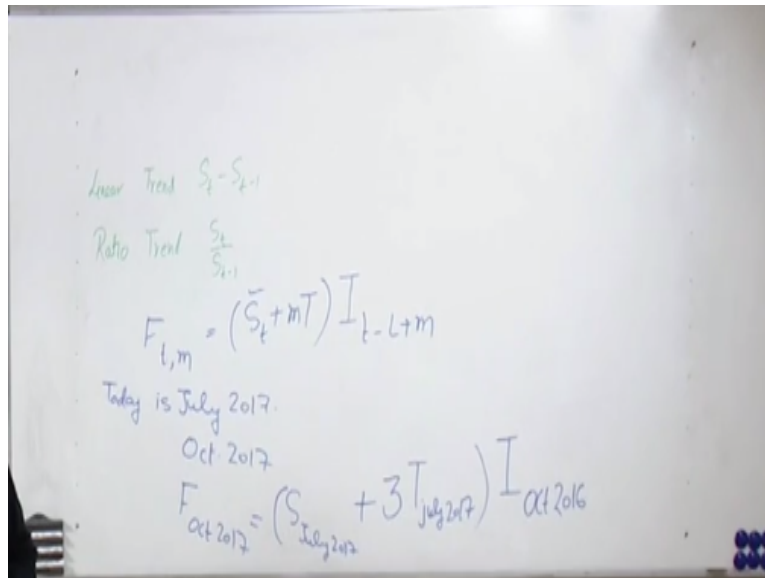 Linear Trend S_t - S_{t-1}
Ratio Trend S_t / S_{t-1}
F_{t,m} = (S_t + mT) I_{t-L+m}
Today is July 2017.
Oct 2017
F_{Oct 2017} = (S_{July 2017} + 3T_{July 2017}) I_{Oct 2016}